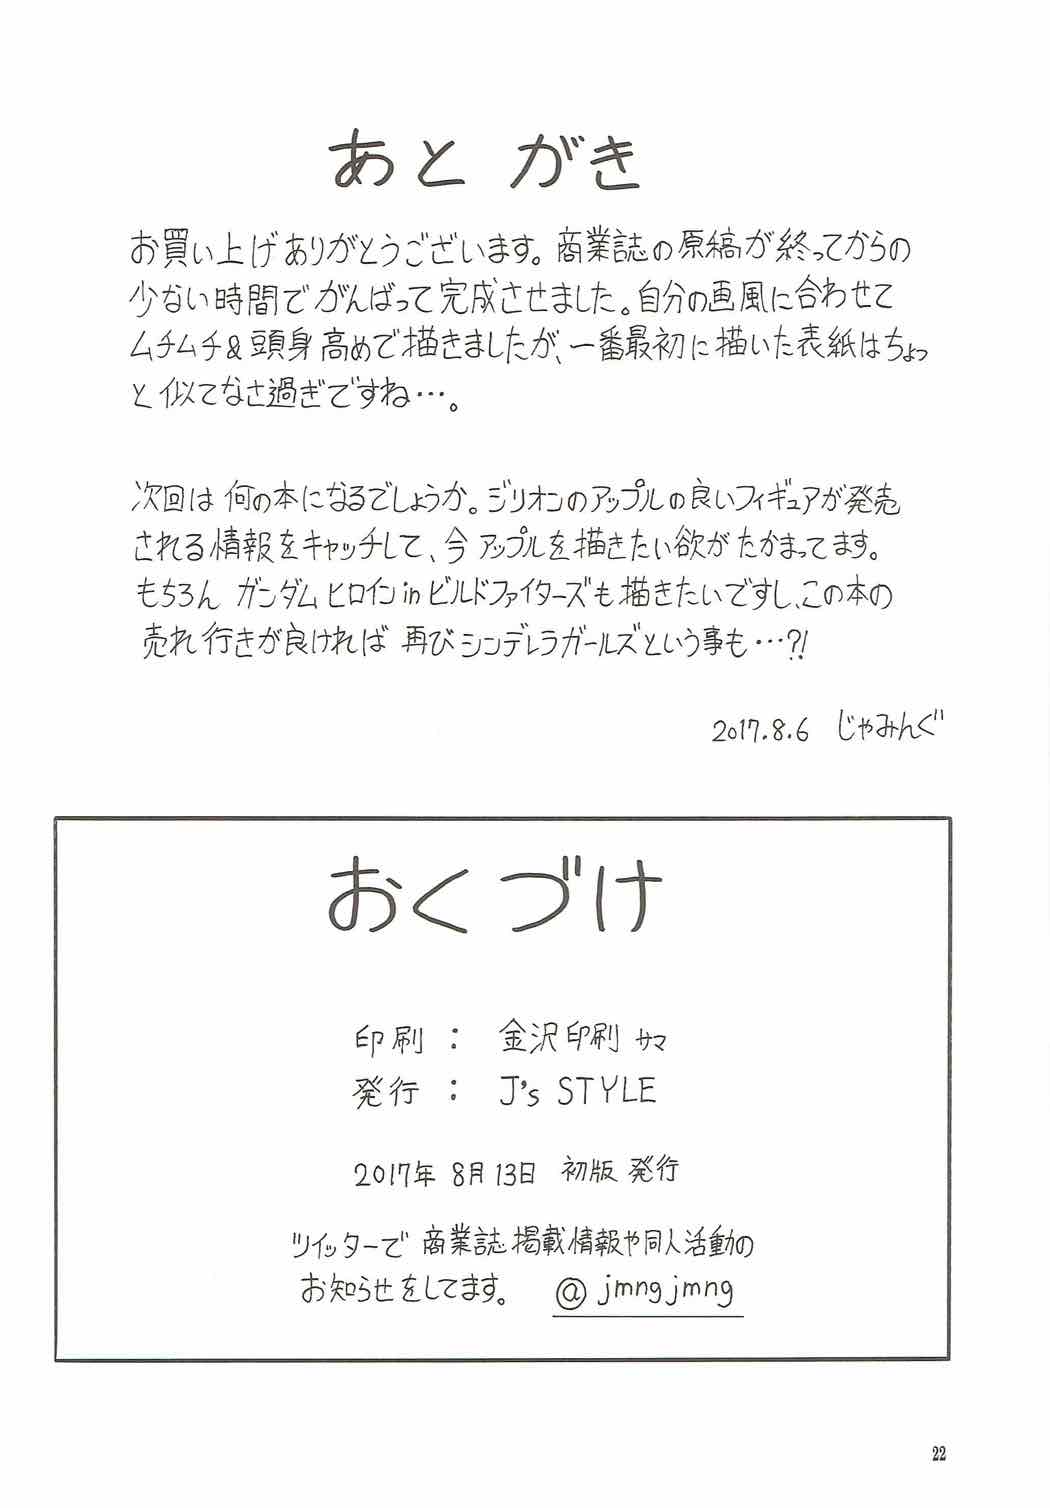 あとがき
お買い上げありがとうございます。商業誌の原稿が終ってからの
少ない時間でがんばって完成させました。自分の画風に合わせて
ムチムチ&頭身高めで描きましたが、一番最初に描いた表紙はちょっ
と似てなさ過ぎですね…。
次回は何の本になるでしょうか。ジリオンのアップルの良いフィギュアが発売
される情報をキャッチして、今アップルを描きたい欲がたかまってます。
もちろん ガンダムヒロインinビルドファイターズも描きたいですし、この本の
売れ行きが良ければ 再びシンデレラガールズという事も…?!
2017.8.6 じゃみんぐ
おくづけ
印刷： 金沢印刷サマ
発行： J's STYLE
2017年 8月13日 初版発行
ツイッターで商業誌掲載情報や同人活動の
お知らせをしてます。 @jmngjmng
22